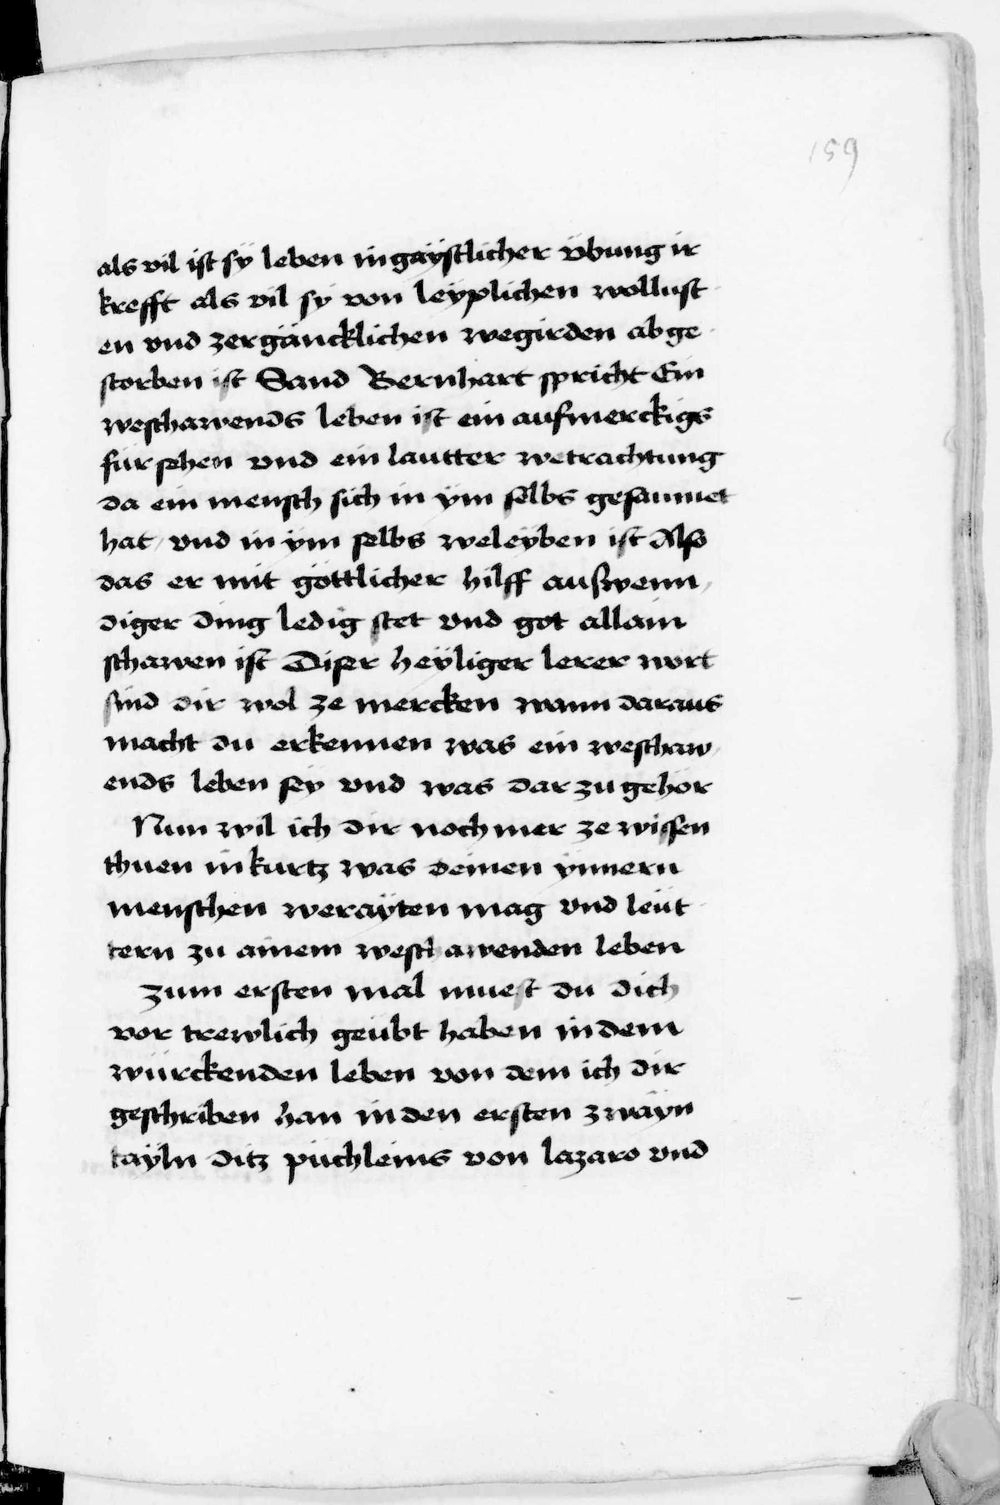 159
als vil ist sÿ leben in gaÿstlicher v̈bung ir
krefft als vil sÿ von leÿplichen wollust
en vnd zergäncklichen wegirden ab ge
storben ist Sand Bernhart spricht Ein
weschawends leben ist ein aufmerckigs
fürsehen vnd ein lautter wetrachtung
da ein mensch sich in ÿm selbs gesammet
hat / vnd in ÿm selbs weleÿben ist Also
das er mit göttlicher hilff auswenn /
diger ding ledig stet vnd got allain
schawen ist Diser heÿliger lerer wort
sind dir wol ze mercken wann daraus
macht du erkennen was ein weschaw /
ends leben seÿ vnd was dar zu gehör
Nun wil ich dir noch mer ze wissen
thuen in kurtz was deinen ÿnnern
menschen weraÿten mag vnd leüt
tern zu ainem weschawenden leben
Zum ersten mal muest du dich
vor trewlich geübt haben in dem
würckenden leben von dem ich dir
geschriben han in den ersten zwaÿn
taÿln ditz püchleins von lazaro vnd